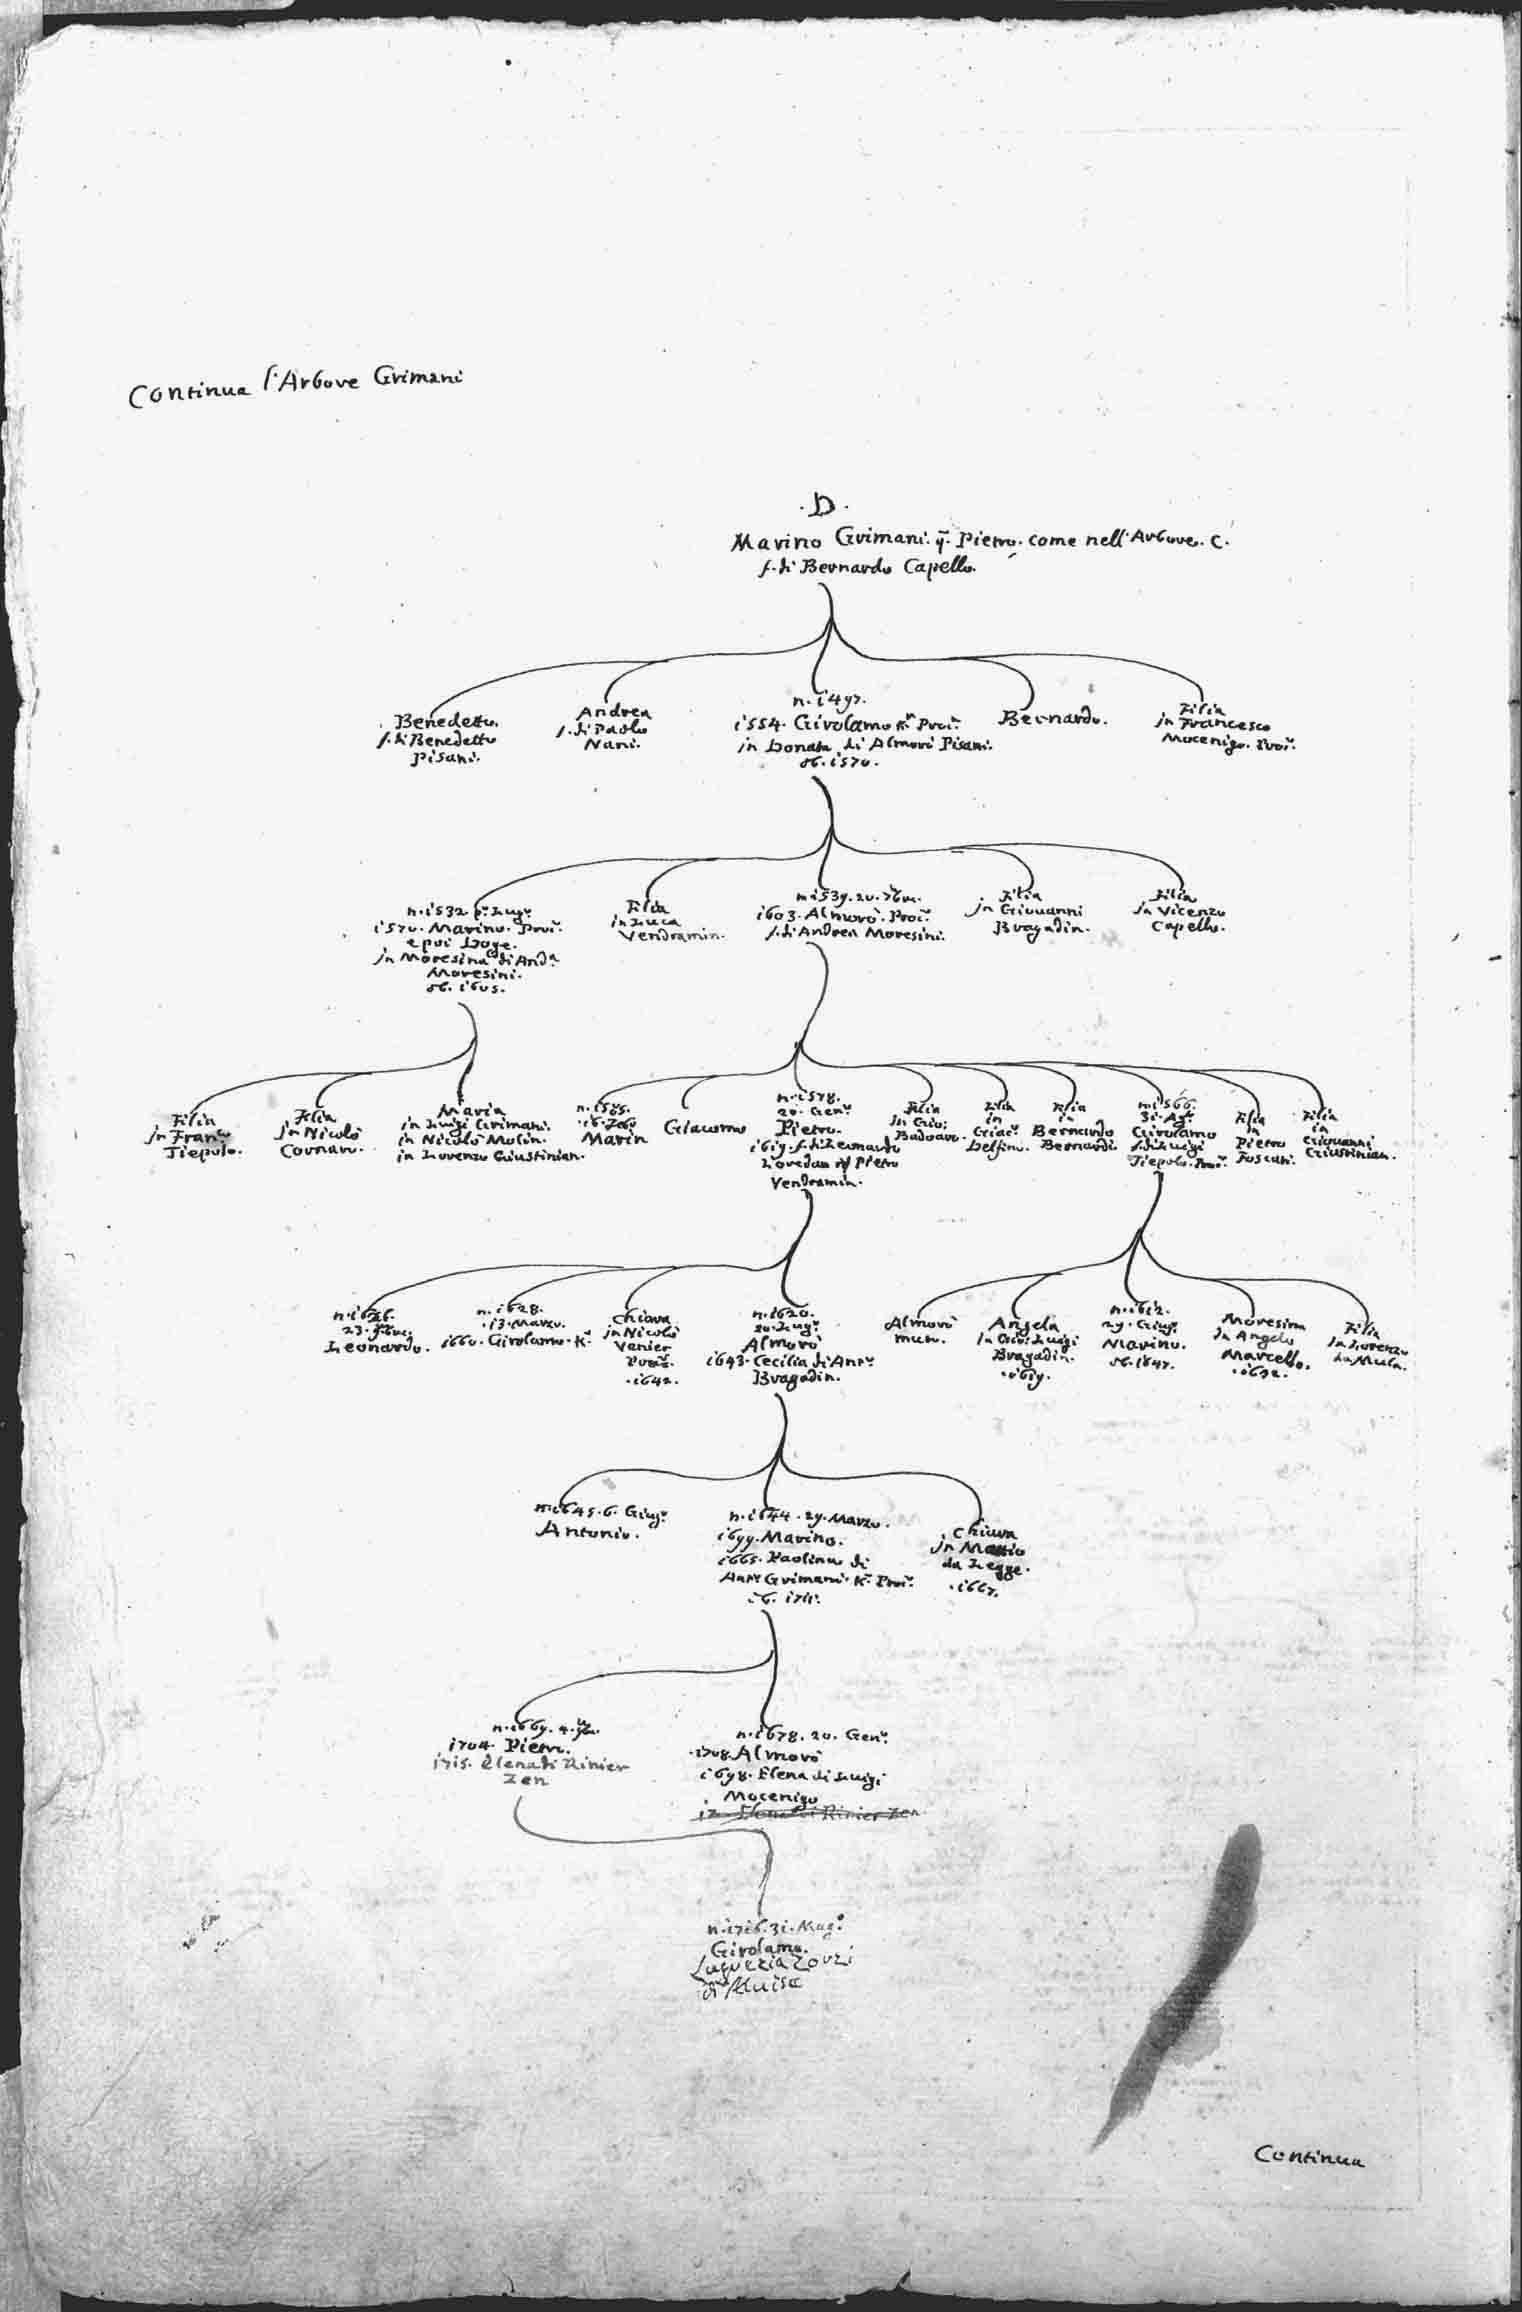 Continua l'Arbore Grimani
.D.
Marino Grimani. q. Pietro. come nell'Arbore. C.
f. di Bernardo Capello.
Benedetto.
f. di Benedetto
Pisani.
Andrea
f. di Paolo
Nani.
n. 1497.
1554. Girolamo K. Proc.
in Donata di Almorò Pisani.
ob. 1570.
Bernardo.
Filia
in Francesco
Mocenigo. Proc.
n. 1532. p. Lug.
1570. Marino. Proc.
e poi Doge.
in Moresina di And.
Moresini.
ob. 1605.
Filia
in Luca
Vendramin.
n. 1539. 20. 7bre.
1603. Almorò. Proc.
f. di Andrea Moresini.
Filia
in Giouanni
Bragadin.
Filia
in Vicenzo
Capello.
Filia
in Franc.
Tiepolo.
Filia
in Nicolò
Cornaro.
Maria
in Luigi Grimani.
in Nicolò Molin.
in Lorenzo Giustinian.
Marin
Giacomo
n. 1578.
20. Gen.
Pietro.
1619. f. di Leonardo
Loredan Pietro
Vendramin.
Filia
in Gio:
Badoaro.
Filia
in
Giac.
Delfino.
Filia
in
Bernardo
Bernardi.
n. 1566.
31. Ag.
Girolamo
f. di Luigi
Tiepolo. Proc.
Filia
in
Pietro
Foscari.
Filia
in
Giouanni
Giustinian.
n. 1626.
23.
Leonardo.
n. 1628.
.13. Marzo.
1660. Girolamo. K.
Chiara
in Nicolò
Venier
Proc.
.1642.
n. 1620.
20. Lug.
Almorò
1643. Cecilia di Ant.
Bragadin.
Almorò
Angela
in Gio: Luigi
Bragadin.
.1619.
n. 1612.
29. Giug.
Marino.
ob. 1647.
Moresina
in Angelo
Marcello.
.1632.
Filia
in Lorenzo
da Mula.
n. 1645. 6. Giug.
Antonio.
n. 1644. 29. Marzo.
1699. Marino.
1665. Paolina di
Ant. Grimani. K. Proc.
ob. 1711.
Chiara
in Mattio
da Legge.
.1667.
n. 1669. 4.
1704. Pietro.
1715. Elena di Rinier
Zen
n. 1678. 20. Gen.
.1708. Almorò
1698. Elena di Luigi
Mocenigo
17 Elena di Rinier Zen
n. 1716. 31. Mag.
Girolamo.
Luguezia Zorzi
di Aluise
Continua